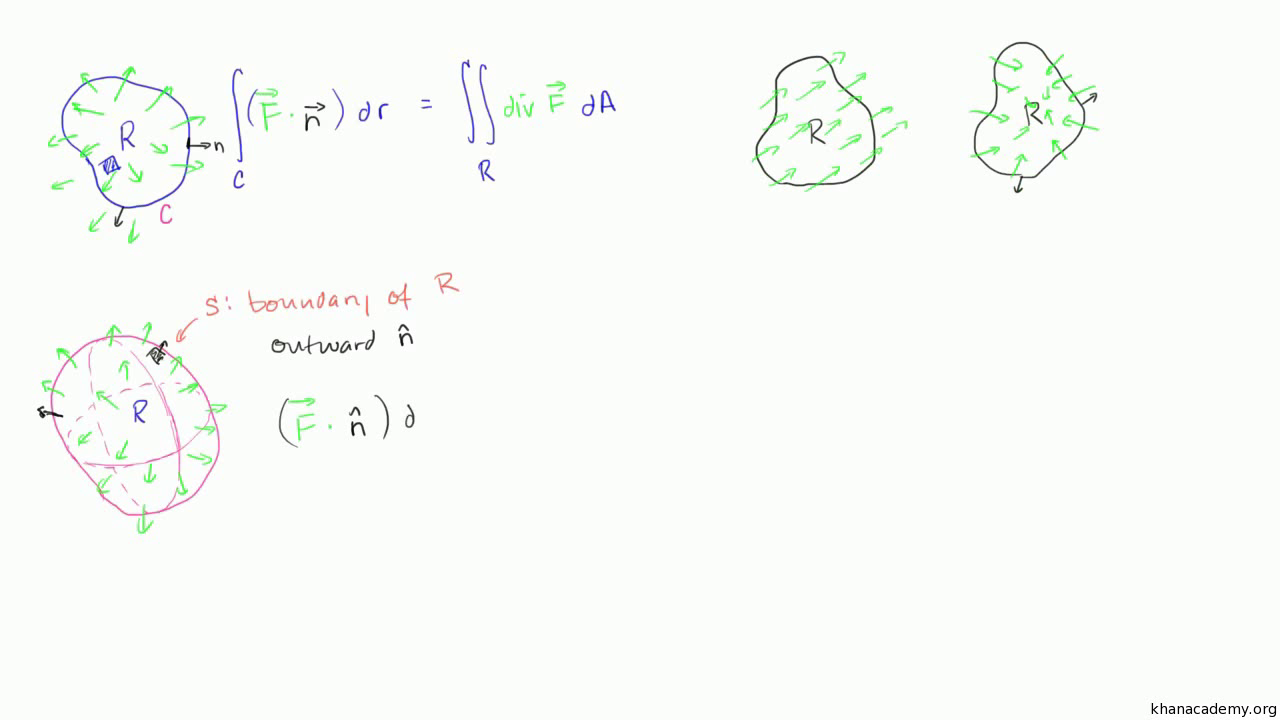 R
n
C
∫_C (F⃗ · n⃗) dr = ∬_R div F⃗ dA
R
R
S: boundary of R
outward n̂
R
(F⃗ · n̂) d
khanacademy.org